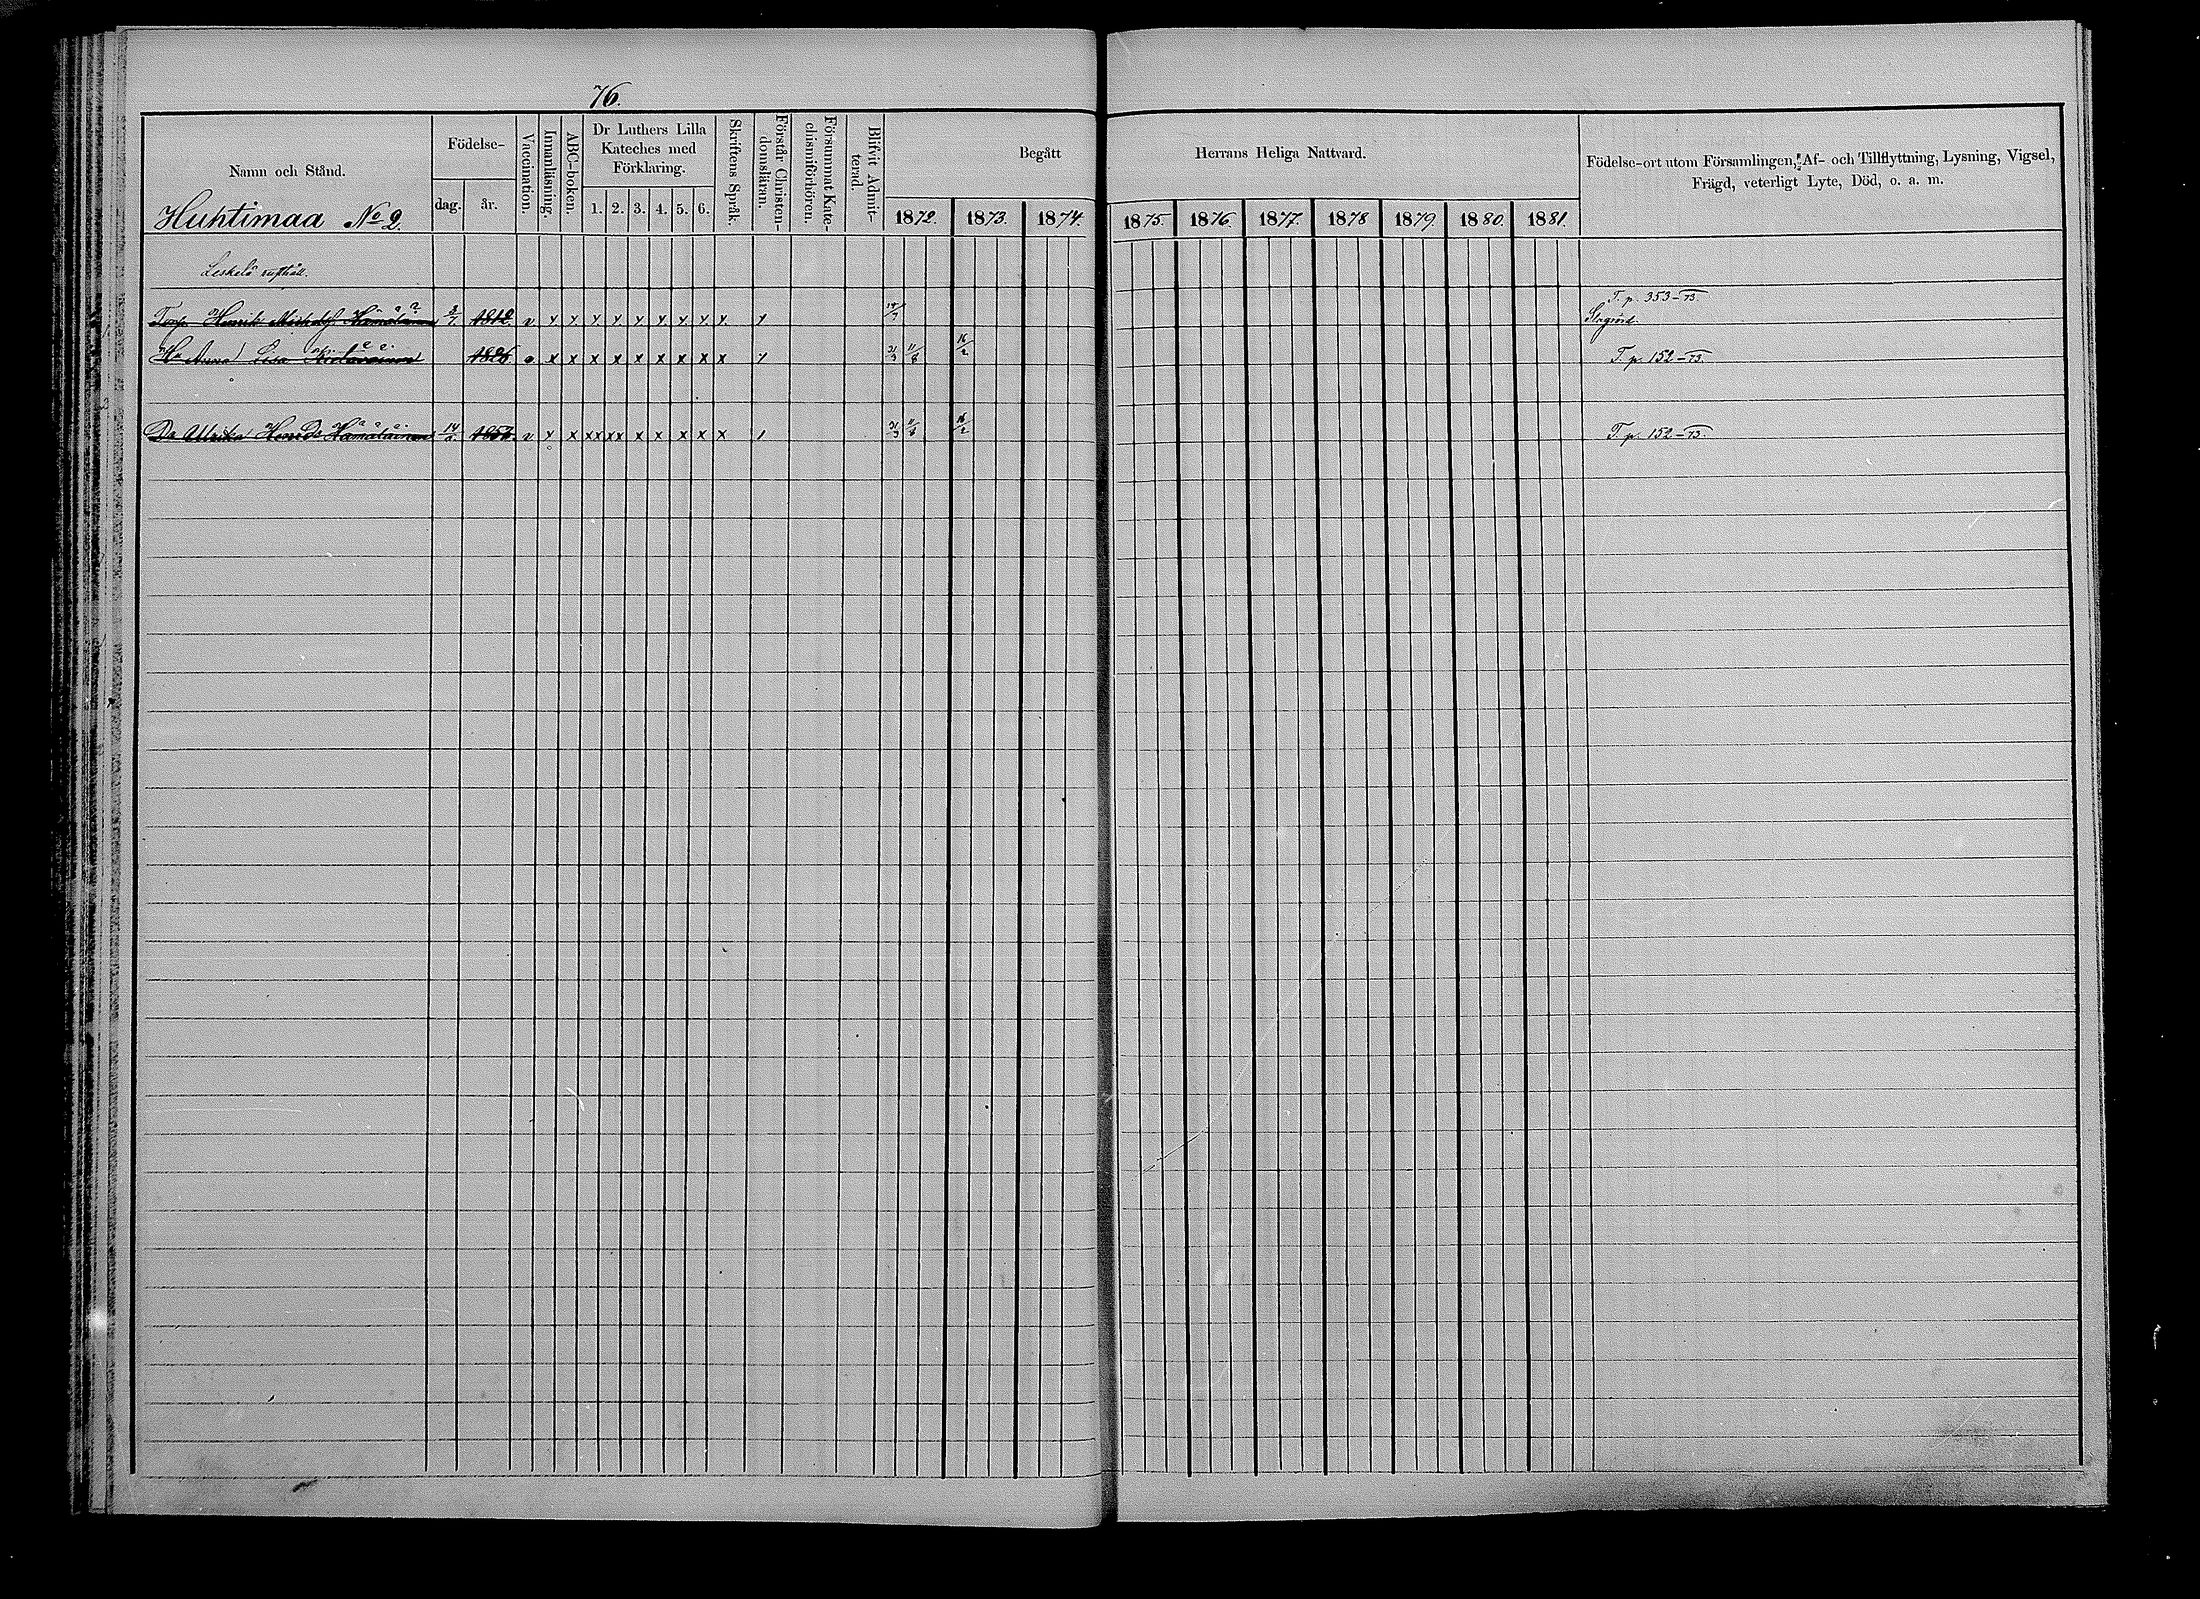 76.
Namn och Stånd.
Huhtimaa No 2.
Födelse-
dag. år.
Vaccination.
Innanläsning.
ABC-boken.
Dr Luthers Lilla
Kateches med
Förklaring.
1. 2. 3. 4. 5. 6.
Skriftens Språk.
Förstår Christen-
domsläran.
Försummat Kate-
chismiförhören.
Blifvit Admit-
terad.
Begått Herrans Heliga Nattvard.
1872. 1873. 1874. 1875. 1876. 1877. 1878 1879. 1880. 1881.
Födelse-ort utom Församlingen, Af- och Tillflyttning, Lysning, Vigsel,
Frägd, veterligt Lyte, Död, o. a. m.
Leskelä
T. p. 353-73.
Torp. Henrik Hämäläinen 1812. v x x x x x x x x x
Hu Anna Lisa 1826 x x x x x x x x x 21/3 11/8 16/2 T. p. 152-73.
Da Ulrika Henrsdr Hämäläinen 14/2 v x x xx xx x x x x x 21/3 11/8 16/2 T. p. 152-73.